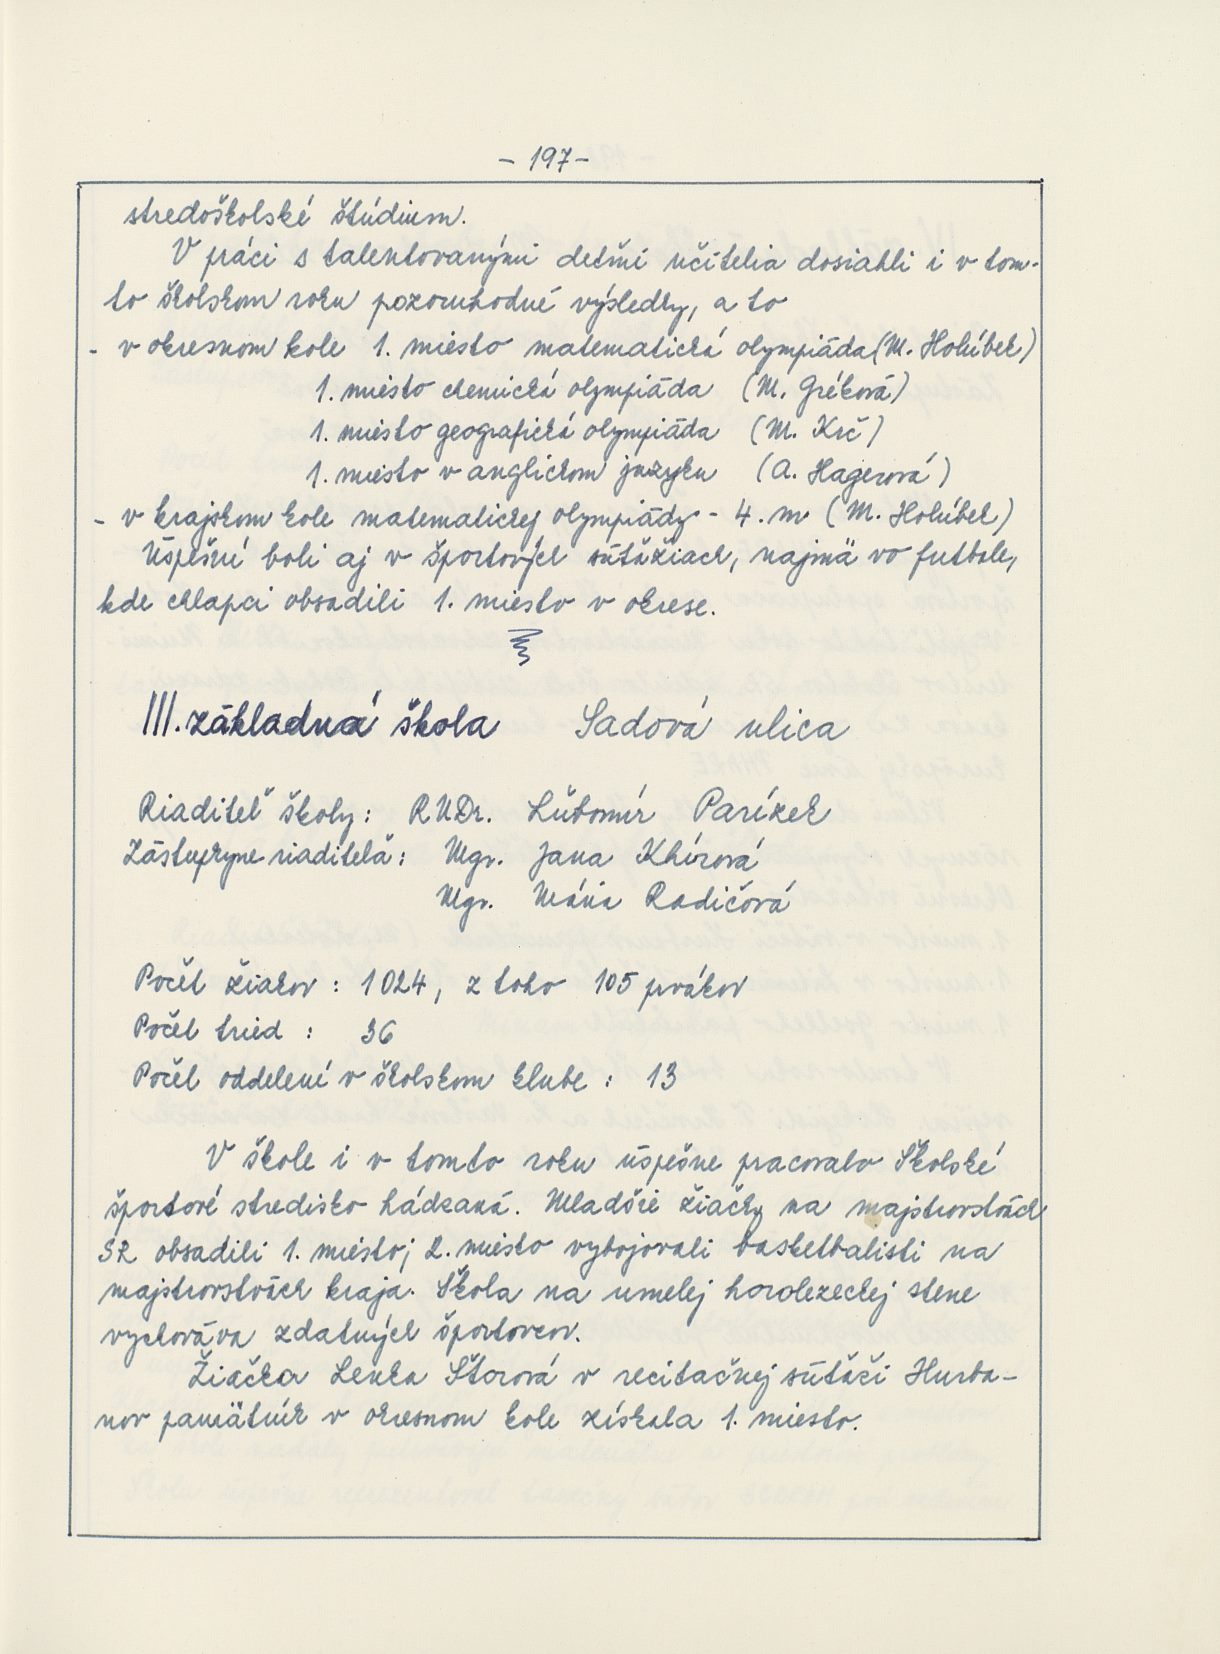 - 197 -
stredoškolské štúdium.
V práci s talentovanými deťmi učitelia dosiahli i v tom-
to školskom roku pozoruhodné výsledky, a to
- v okresnom kole 1. miesto matematická olympiáda (M. Holúbek)
1. miesto chemická olympiáda (M. Gréková)
1. miesto geografická olympiáda (M. Krč)
1. miesto v anglickom jazyku (A. Hagerová)
- v krajskom kole matematickej olympiády - 4. m (M. Holúbek)
Úspešní boli aj v športových súťažiach, najmä vo futbale,
kde chlapci obsadili 1. miesto v okrese.
III. základná škola Sadová ulica
Riaditeľ školy: RNDr. Ľubomír Parízek
Zástupkyne riaditeľa: Mgr. Jana Khírová
Mgr. Mária Radičová
Počet žiakov : 1024, z toho 105 prvákov
Počet tried : 36
Počet oddelení v školskom klube : 13
V škole i v tomto roku úspešne pracovalo Školské
športové stredisko hádzaná. Mladšie žiačky na majstrovstvách
SR obsadili 1. miesto; 2. miesto vybojovali basketbalisti na
majstrovstvách kraja. Škola na umelej horolezeckej stene
vychováva zdatných športovcov.
Žiačka Lenka Štorová v recitačnej súťaži Hurba-
nov pamätník v okresnom kole získala 1. miesto.